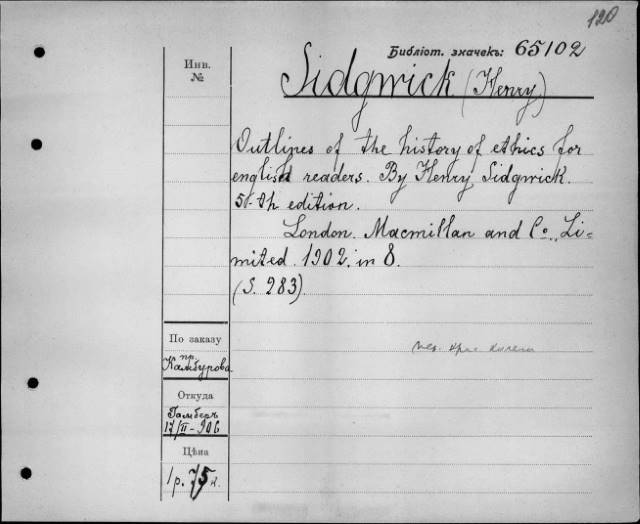 120
Библіот. значекъ: 65102
Инв.
№
Sidgwick (Henry)
Outlines of the history of ethics for
english readers. By Henry Sidgwick.
5-th edition.
London. Macmillan and Co., Li-
mited. 1902. in 8.
(S. 283)
По заказу
пр.
Камбурова
Откуда
Гамберъ
17/II-906
Цѣна
1 р. 75 к.